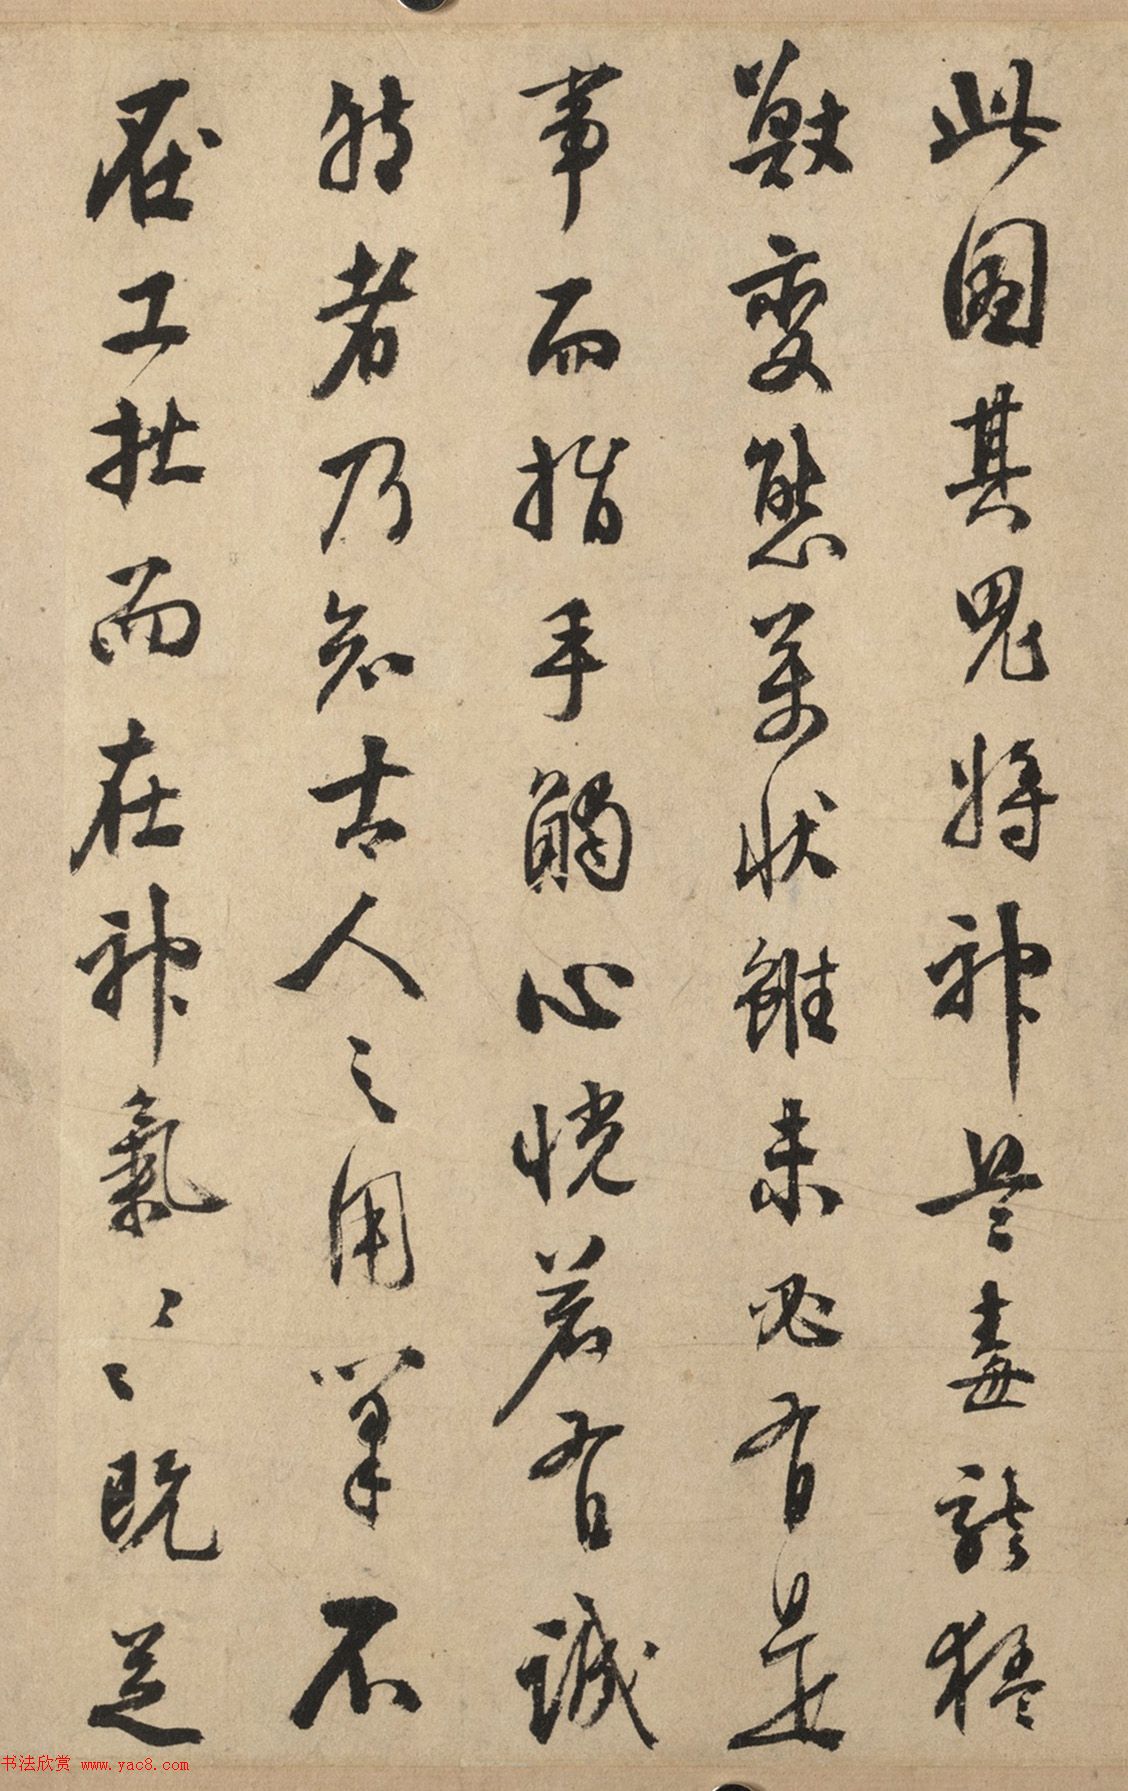 此圖其鬼將神兵毒龍猛
獸變態萬狀雖未必有是
事而指手觸心恍若有誠
然者乃知古人之用筆不
在工拙而在神氣々々既足
书法欣赏 www.yac8.com